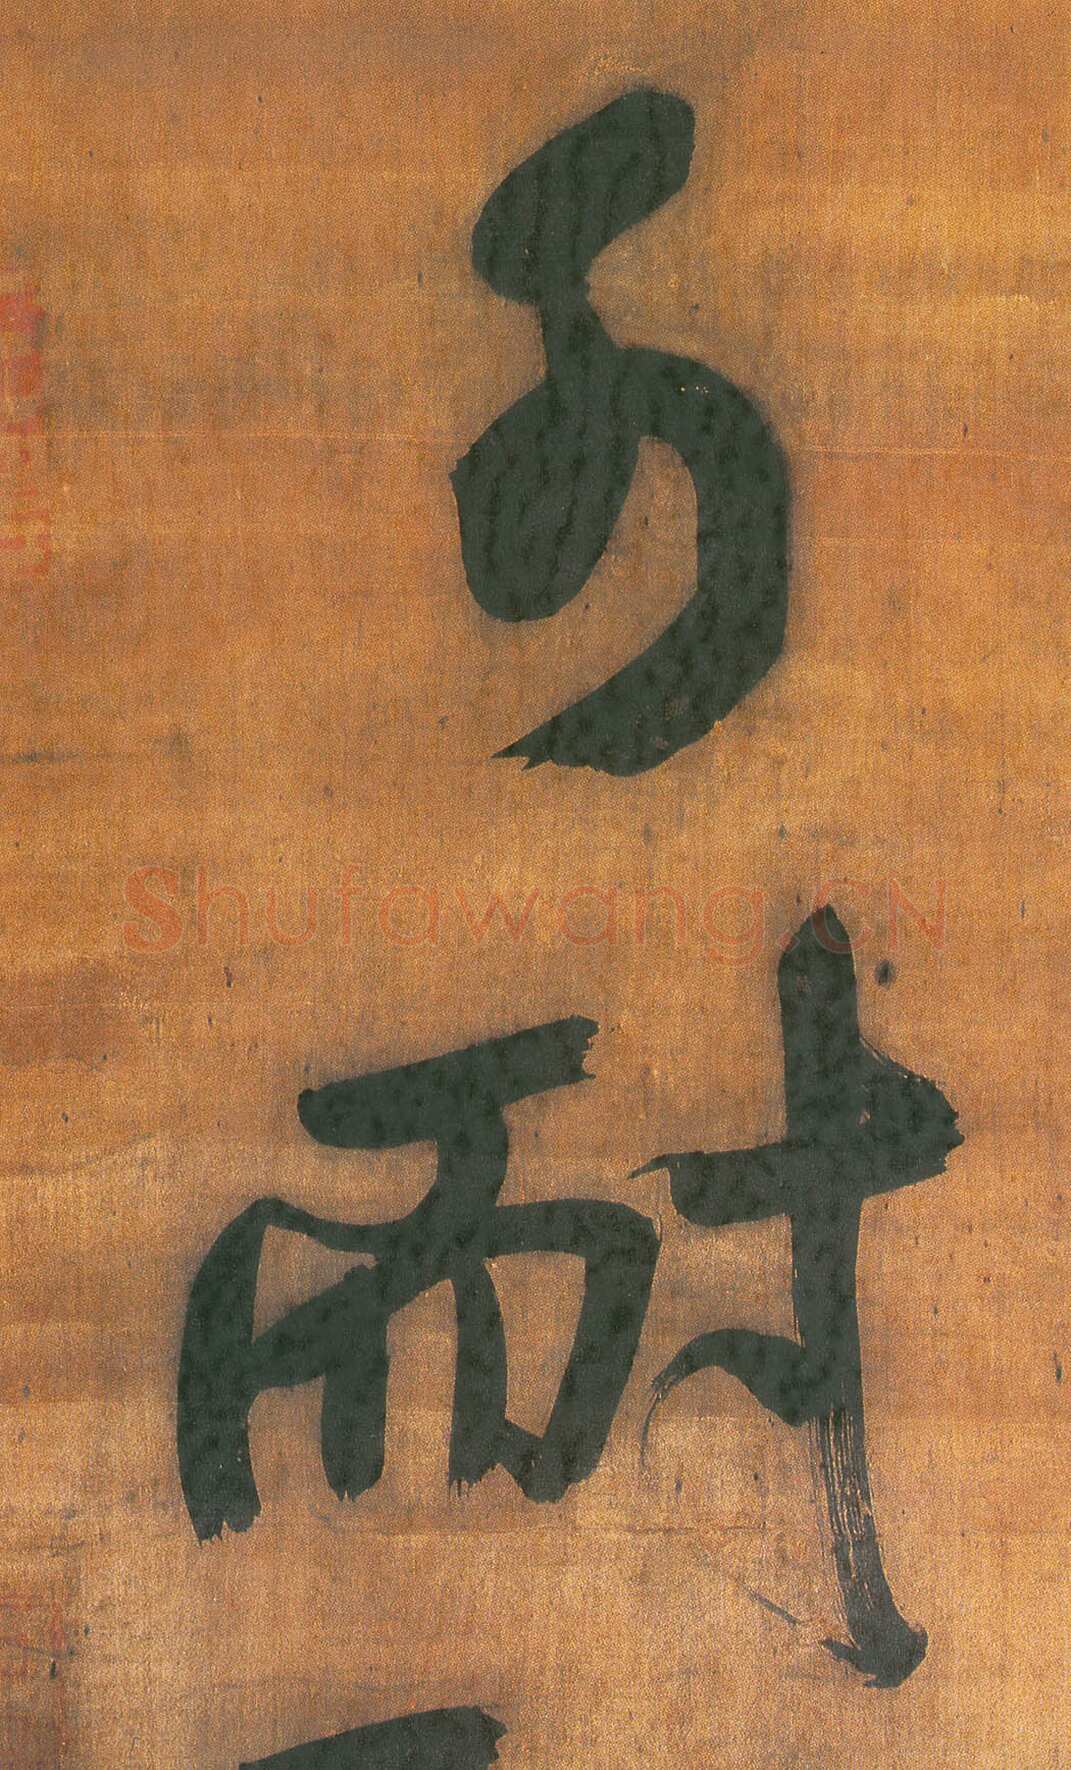 可
Shufawang.CN
耐